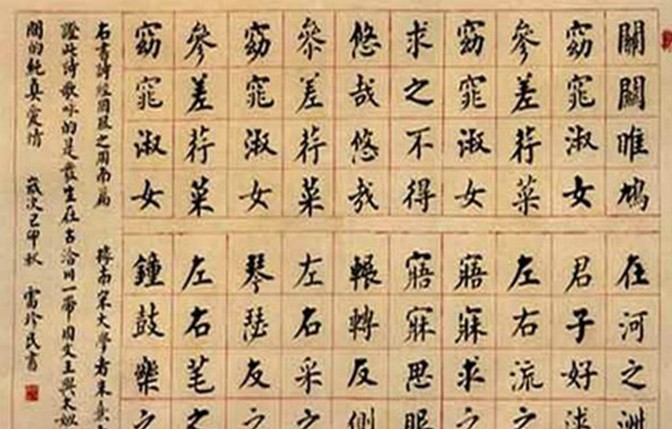 關關雎鳩 在河之洲
窈窕淑女 君子好逑
參差荇菜 左右流之
窈窕淑女 寤寐求之
求之不得 寤寐思服
悠哉悠哉 輾轉反側
參差荇菜 左右采之
窈窕淑女 琴瑟友之
參差荇菜 左右芼之
窈窕淑女 鐘鼓樂之
右書詩經國風之周南篇 據南宋大學者朱熹
證此詩歌咏的是發生在古洽川一帶周文王與太姒
間的純真愛情 歲次己卯秋 雷珍民書